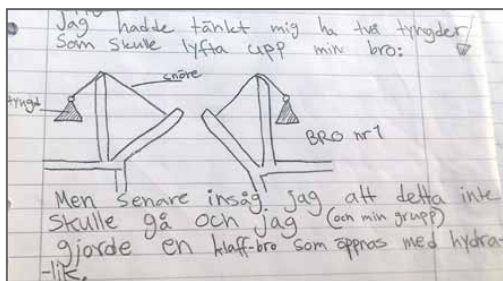 Jag hadde tänkt mig ha två tyngder
Som skulle lyfta upp min bro:
snöre
tyngd
BRO nr 1
Men senare insåg jag att detta inte
skulle gå och jag (och min grupp)
gjorde en klaff-bro som öppnas med hydra-
-lik.